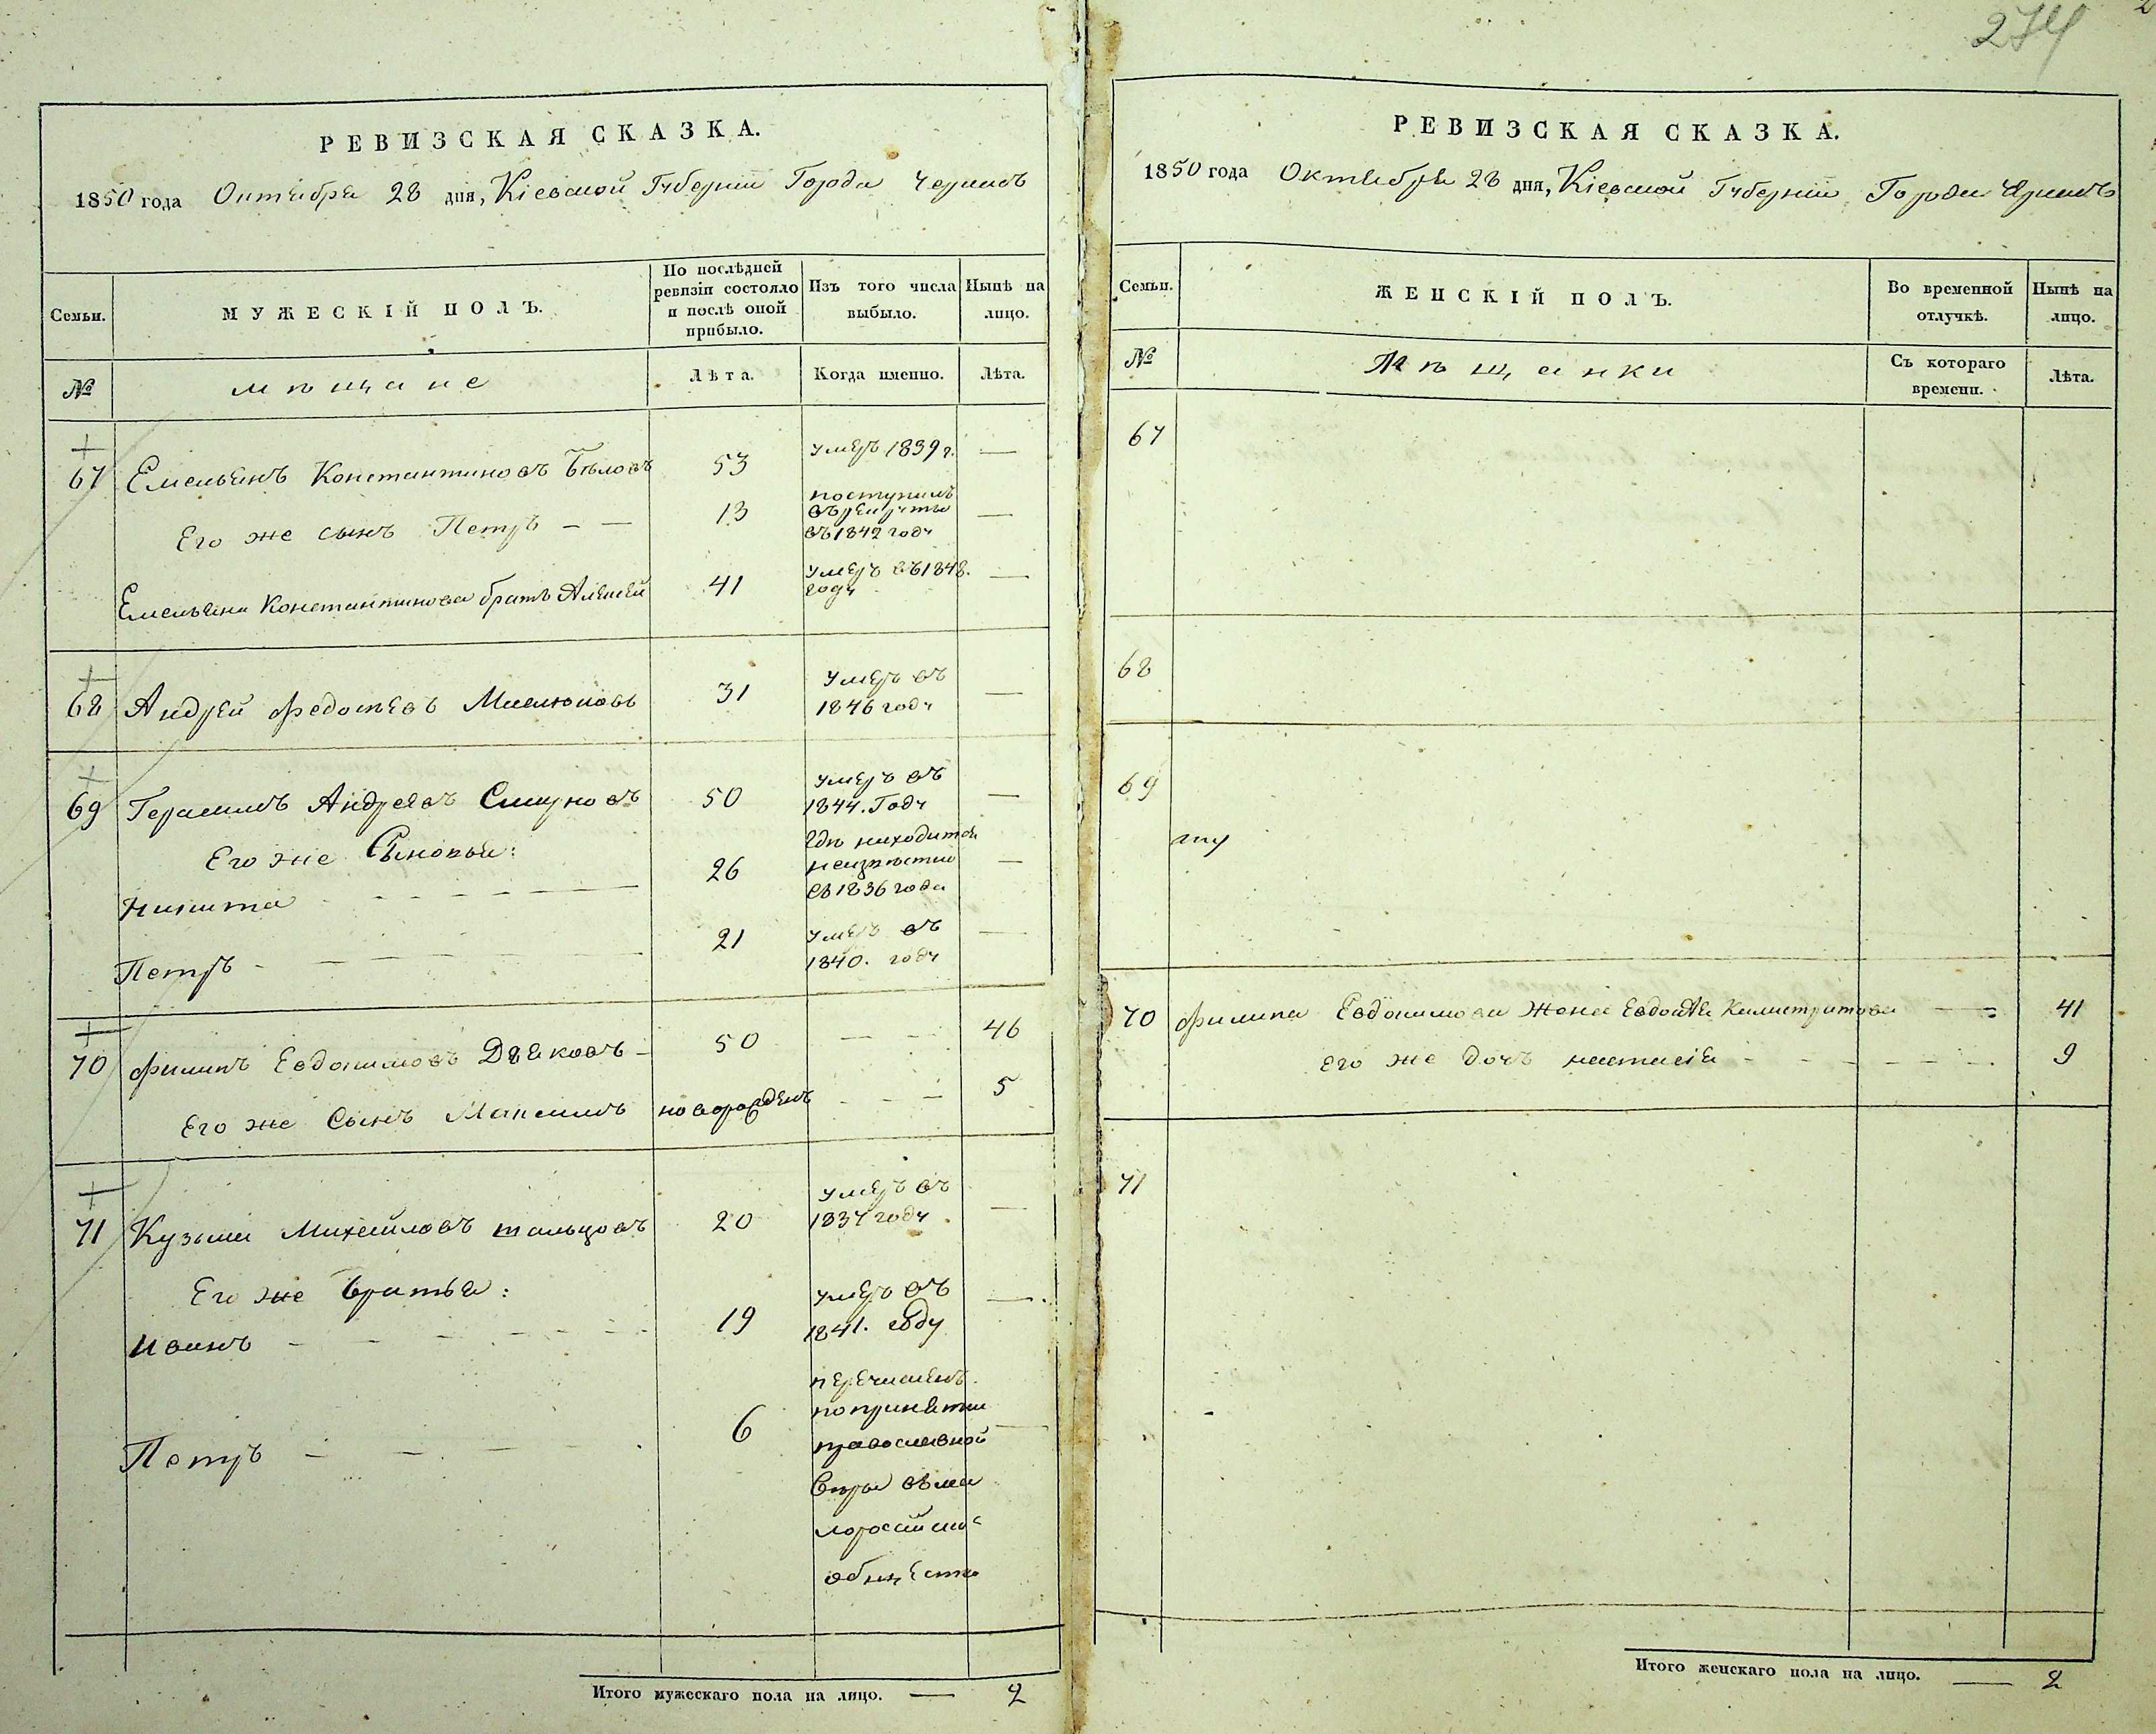 274
РЕВИЗСКАЯ СКАЗКА.
1850 года Октября 28 дня, Кіевской Губерніи Города
Семьи.
МУЖЕСКІЙ ПОЛЪ.
По послѣдней ревизіи состояло и послѣ оной прибыло.
Изъ того числа выбыло.
Нынѣ на лицо.
№
мѣщане
Лѣта.
Когда именно.
Лѣта.
67 Емельянъ Константиновъ Бѣловъ 53 умеръ 1839 г. —
Его же сынъ Петръ — — 13 поступилъ
въ рекруты
въ 1842 году —
Емельяна Константинова братъ Алексей 41 умеръ въ 1848.
году —
68 Андрей Федотьевъ 31 умеръ въ
1846 году —
69 Герасимъ Андреевъ Смирновъ 50 умеръ въ
1844. Году —
Его же Сыновья:
Никита 26 где находится
неизвѣстно
съ 1836 года —
Петръ 21 умеръ въ
1840. году —
70 Филипъ Евдокимовъ Дьяковъ 50 — — 46
Его же Сынъ Максимъ новорожденъ — — — 5
71 Кузьма Михайловъ 20 умеръ въ
1837 году —
Его же братья:
Иванъ 19 умеръ въ
1841. году —
Петръ — — 6 перечисленъ
по принятии
православной
веры въ ма
лоросійско
общество —
Итого мужескаго пола на лицо. — 2
РЕВИЗСКАЯ СКАЗКА.
1850 года Октября 28 дня, Кіевской Губерніи Города
Семьи.
ЖЕНСКІЙ ПОЛЪ.
Во временной отлучкѣ.
Нынѣ на лицо.
№
Мѣщанки
Съ котораго времени.
Лѣта.
67
68
69
70 Филипа Евдокимова жена Евдокѣя Калистратова — — 41
Его же дочъ настасія — — — — — 9
71
Итого женскаго пола на лицо. — 2